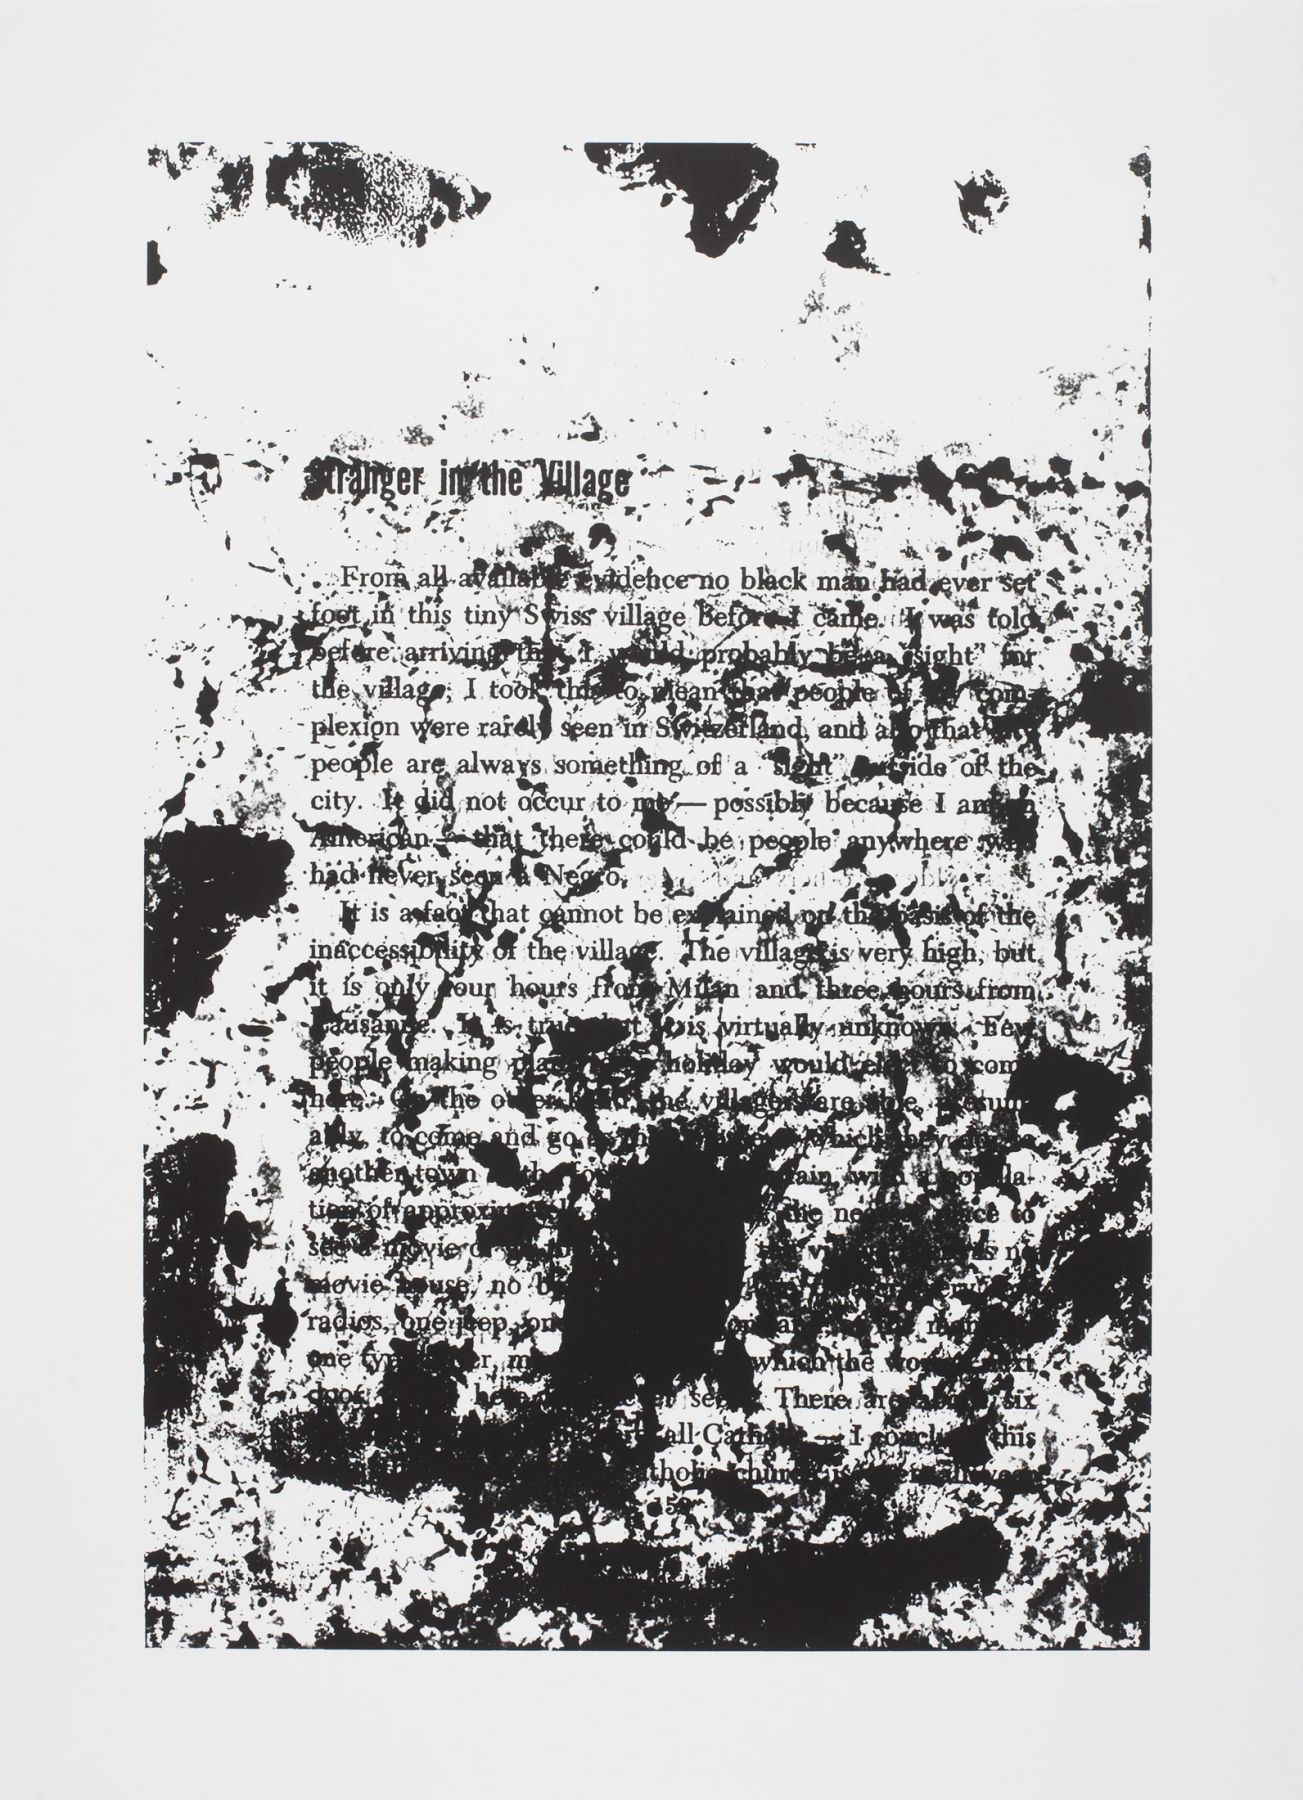 Stranger in the Village
From all available evidence no black man had ever set
foot in this tiny Swiss village before I came. I was told
before arriving that I would probably be a "sight" for
the village; I took this to mean that people of my com-
plexion were rarely seen in Switzerland, and also that city
people are always something of a "sight" outside of the
city. It did not occur to me — possibly because I am an
American — that there could be people anywhere who
had never seen a Negro.
It is a fact that cannot be explained on the basis of the
inaccessibility of the village. The village is very high, but
it is only four hours from Milan and three hours from
Lausanne. It is true that it is virtually unknown. Few
people making plans for a holiday would elect to come
here. On the other hand, the villagers are able, presum-
ably, to come and go as they please — which they do: to
another town at the foot of the mountain, with a popula-
tion of approximately the nearest place to
see a movie or go to the village there is no
movie house, no
radios, one jeep, one
one typewriter, mine, which the woman next
door here had never seen. There are about six
all Catholic — I conclude this
Catholic church is open all year